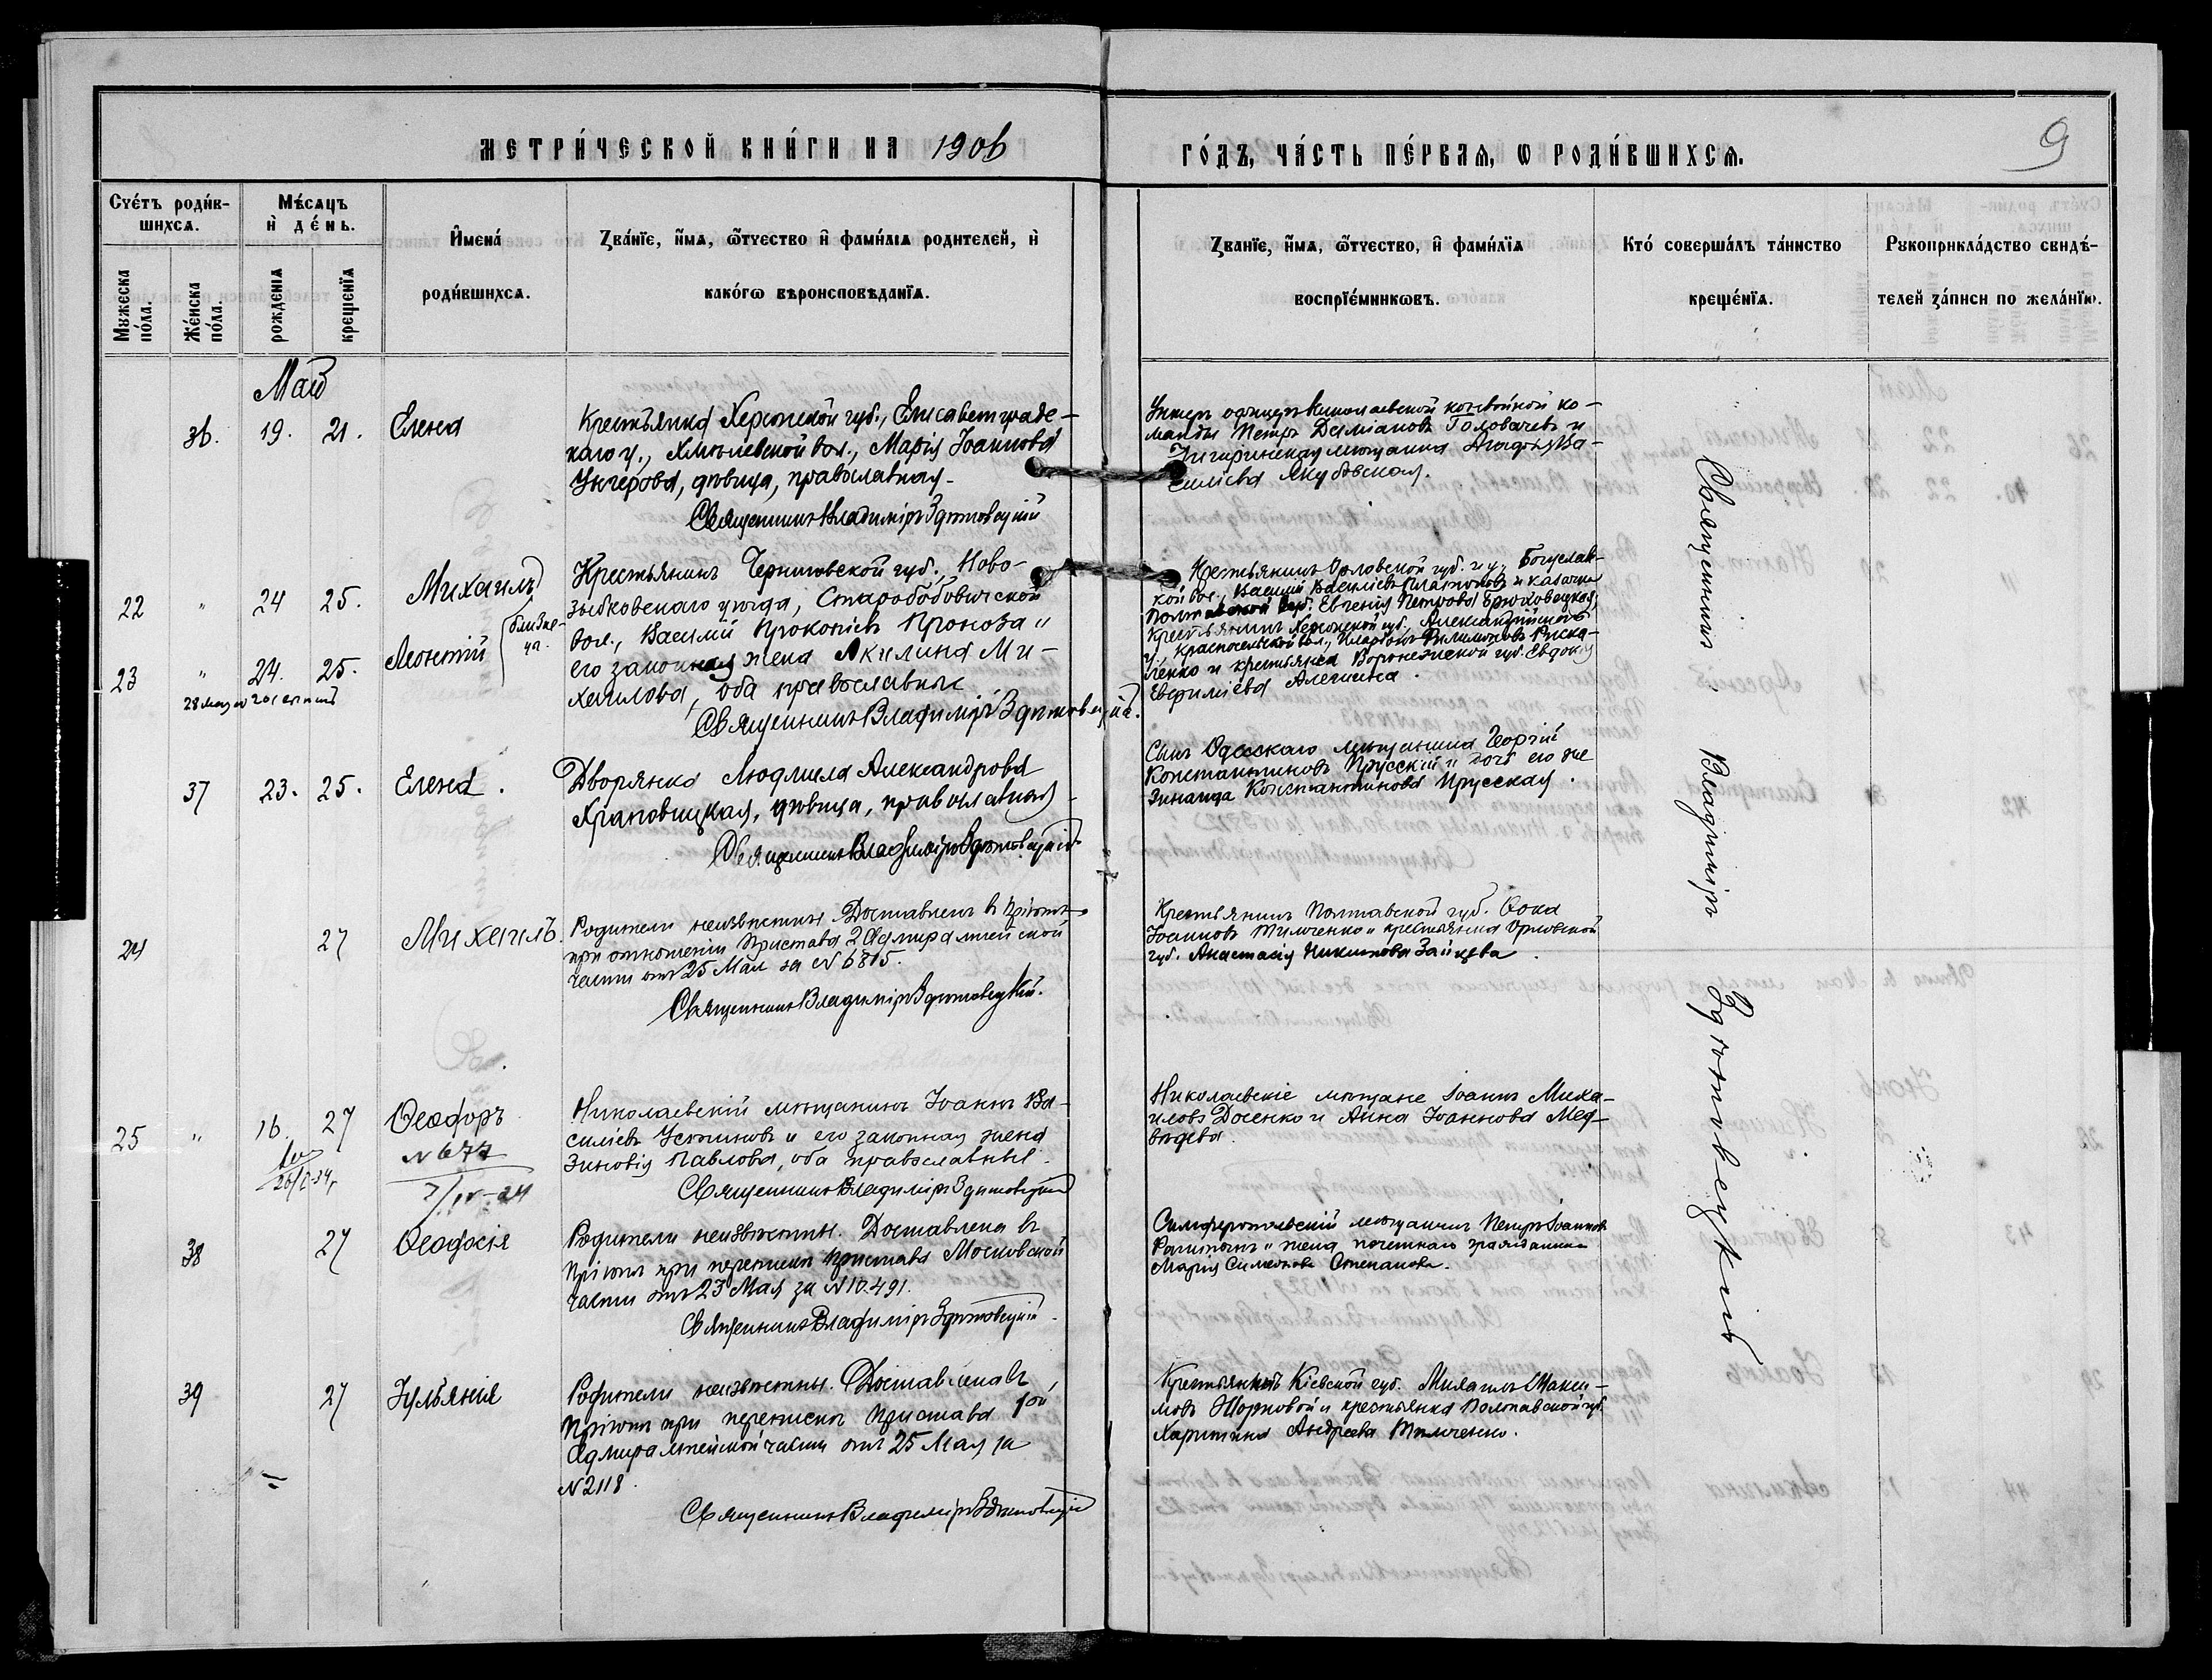 МЕТРИ́ЧЕСКОЙ КНИ́ГИ НА 1906
ГО́ДЪ, ЧА́СТЬ ПЕ́РВАЯ, Ѡ РОДИ́ВШИХСЯ.
9
Сче́тъ роди́в-
шихся.
Мѣ́сяцъ
и҆ де́нь.
Мужеска по́ла.
Же́нска по́ла.
рожденїя
крещенїя
И҆мена́
роди́вшихся.
Зва́нїе, и҆́мя, ѻ҆́тчество и҆ фами́лїя родителей, и҆
како́гѡ вѣроисповѣданїя.
Зва́нїе, и҆́мя, ѻ҆́тчество, и҆ фами́лїя
воспрїе́мникѡвъ.
Кто́ соверша́лъ та́инство
креще́нїя.
Рукоприкла́дство свидѣ́-
телей за́писи по жела́нїю.
Май
36. 19. 21. Елена
Крестьянка Херсонской губ., Елисаветград-
скаго у., Хмѣлевской вол., Марія Іоаннова
дѣвица, православная.
Священникъ Владиміръ Здѣтовецкій
Унтеръ офицеръ Николаевской конвойной ко-
манды Петръ Даміановъ Головачевъ и
Чигиринская мѣщанка Агафія Ва-
силіева Якубовская.
22 " 24 25. Михаилъ
23 " 24. 25. Леонтій
близне-
ца.
28 мая
Крестьянинъ Черниговской губ., Ново-
зыбковскаго уѣзда, Старобобовичской
вол., Василій Прокопіевъ Проноза и
его законная жена Акилина Ми-
хаилова, оба православные
Священникъ Владиміръ Здѣтовецкій.
Крестьянинъ Орловской губ. и у., Богуслав-
кой вол., Василій Василіевъ Платоновъ и казачка
Полтавской губ. Евгенія Петрова Брюховецкая,
крестьянинъ Херсонской губ., Александрійскаго
у., Красносельской вол., Иларіонъ Филимоновъ Руска-
ленко и крестьянка Воронежской губ. Евдокія
Евфиміева Алешина.
37 23. 25. Елена.
Дворянка Людмила Александрова
Храповицкая, дѣвица, православная
Священникъ Владиміръ Здѣтовецкій
Сынъ Одесскаго мѣщанина Георгій
Константиновъ Прусскій и дочь его же
Зинаида Константинова Прусская.
24 27 Михаилъ.
Родители неизвѣстны. Доставленъ въ Пріютъ
при отношеніи Пристава 2 Адмиралтейской
части отъ 25 Мая за № 6815.
Священникъ Владиміръ Здѣтовецкій.
Крестьянинъ Полтавской губ. Ѳока
Іоанновъ Тимченко и крестьянка Орловской
губ. Анастасія Никитова Зайцева.
25 " 16. 27 Ѳеодоръ
№ 677
7/IV-24
Николаевскій мѣщанинъ Іоаннъ Ва-
силіевъ Устиновъ и его законная жена
Зиновія Павлова, оба православные.
Священникъ Владиміръ Здѣтовецкій
Николаевскіе мѣщане Іоаннъ Миха-
иловъ Досенко и Анна Іоаннова Мед-
вѣдева.
38 27 Ѳеодосія
Родители неизвѣстны. Доставлена въ
Пріютъ при перепискѣ Пристава Московской
части отъ 23 Мая за № 10.491.
Священникъ Владиміръ Здѣтовецкій.
Симферопольскій мѣщанинъ Петръ Іоанновъ
и жена почетнаго гражданина
Марія Симеонова Степанова.
39 27 Іуліанія
Родители неизвѣстны. Доставлена въ
Пріютъ при перепискѣ Пристава 1ой
Адмиралтейской части отъ 25 Мая за
№ 2118.
Священникъ Владиміръ Здѣтовецкій
Крестьянинъ Кіевской губ. Михаилъ Макси-
мовъ Жорновой и крестьянка Полтавской губ.
Харитина Андреева Тимченко.
Священникъ Владиміръ Здѣтовецкій